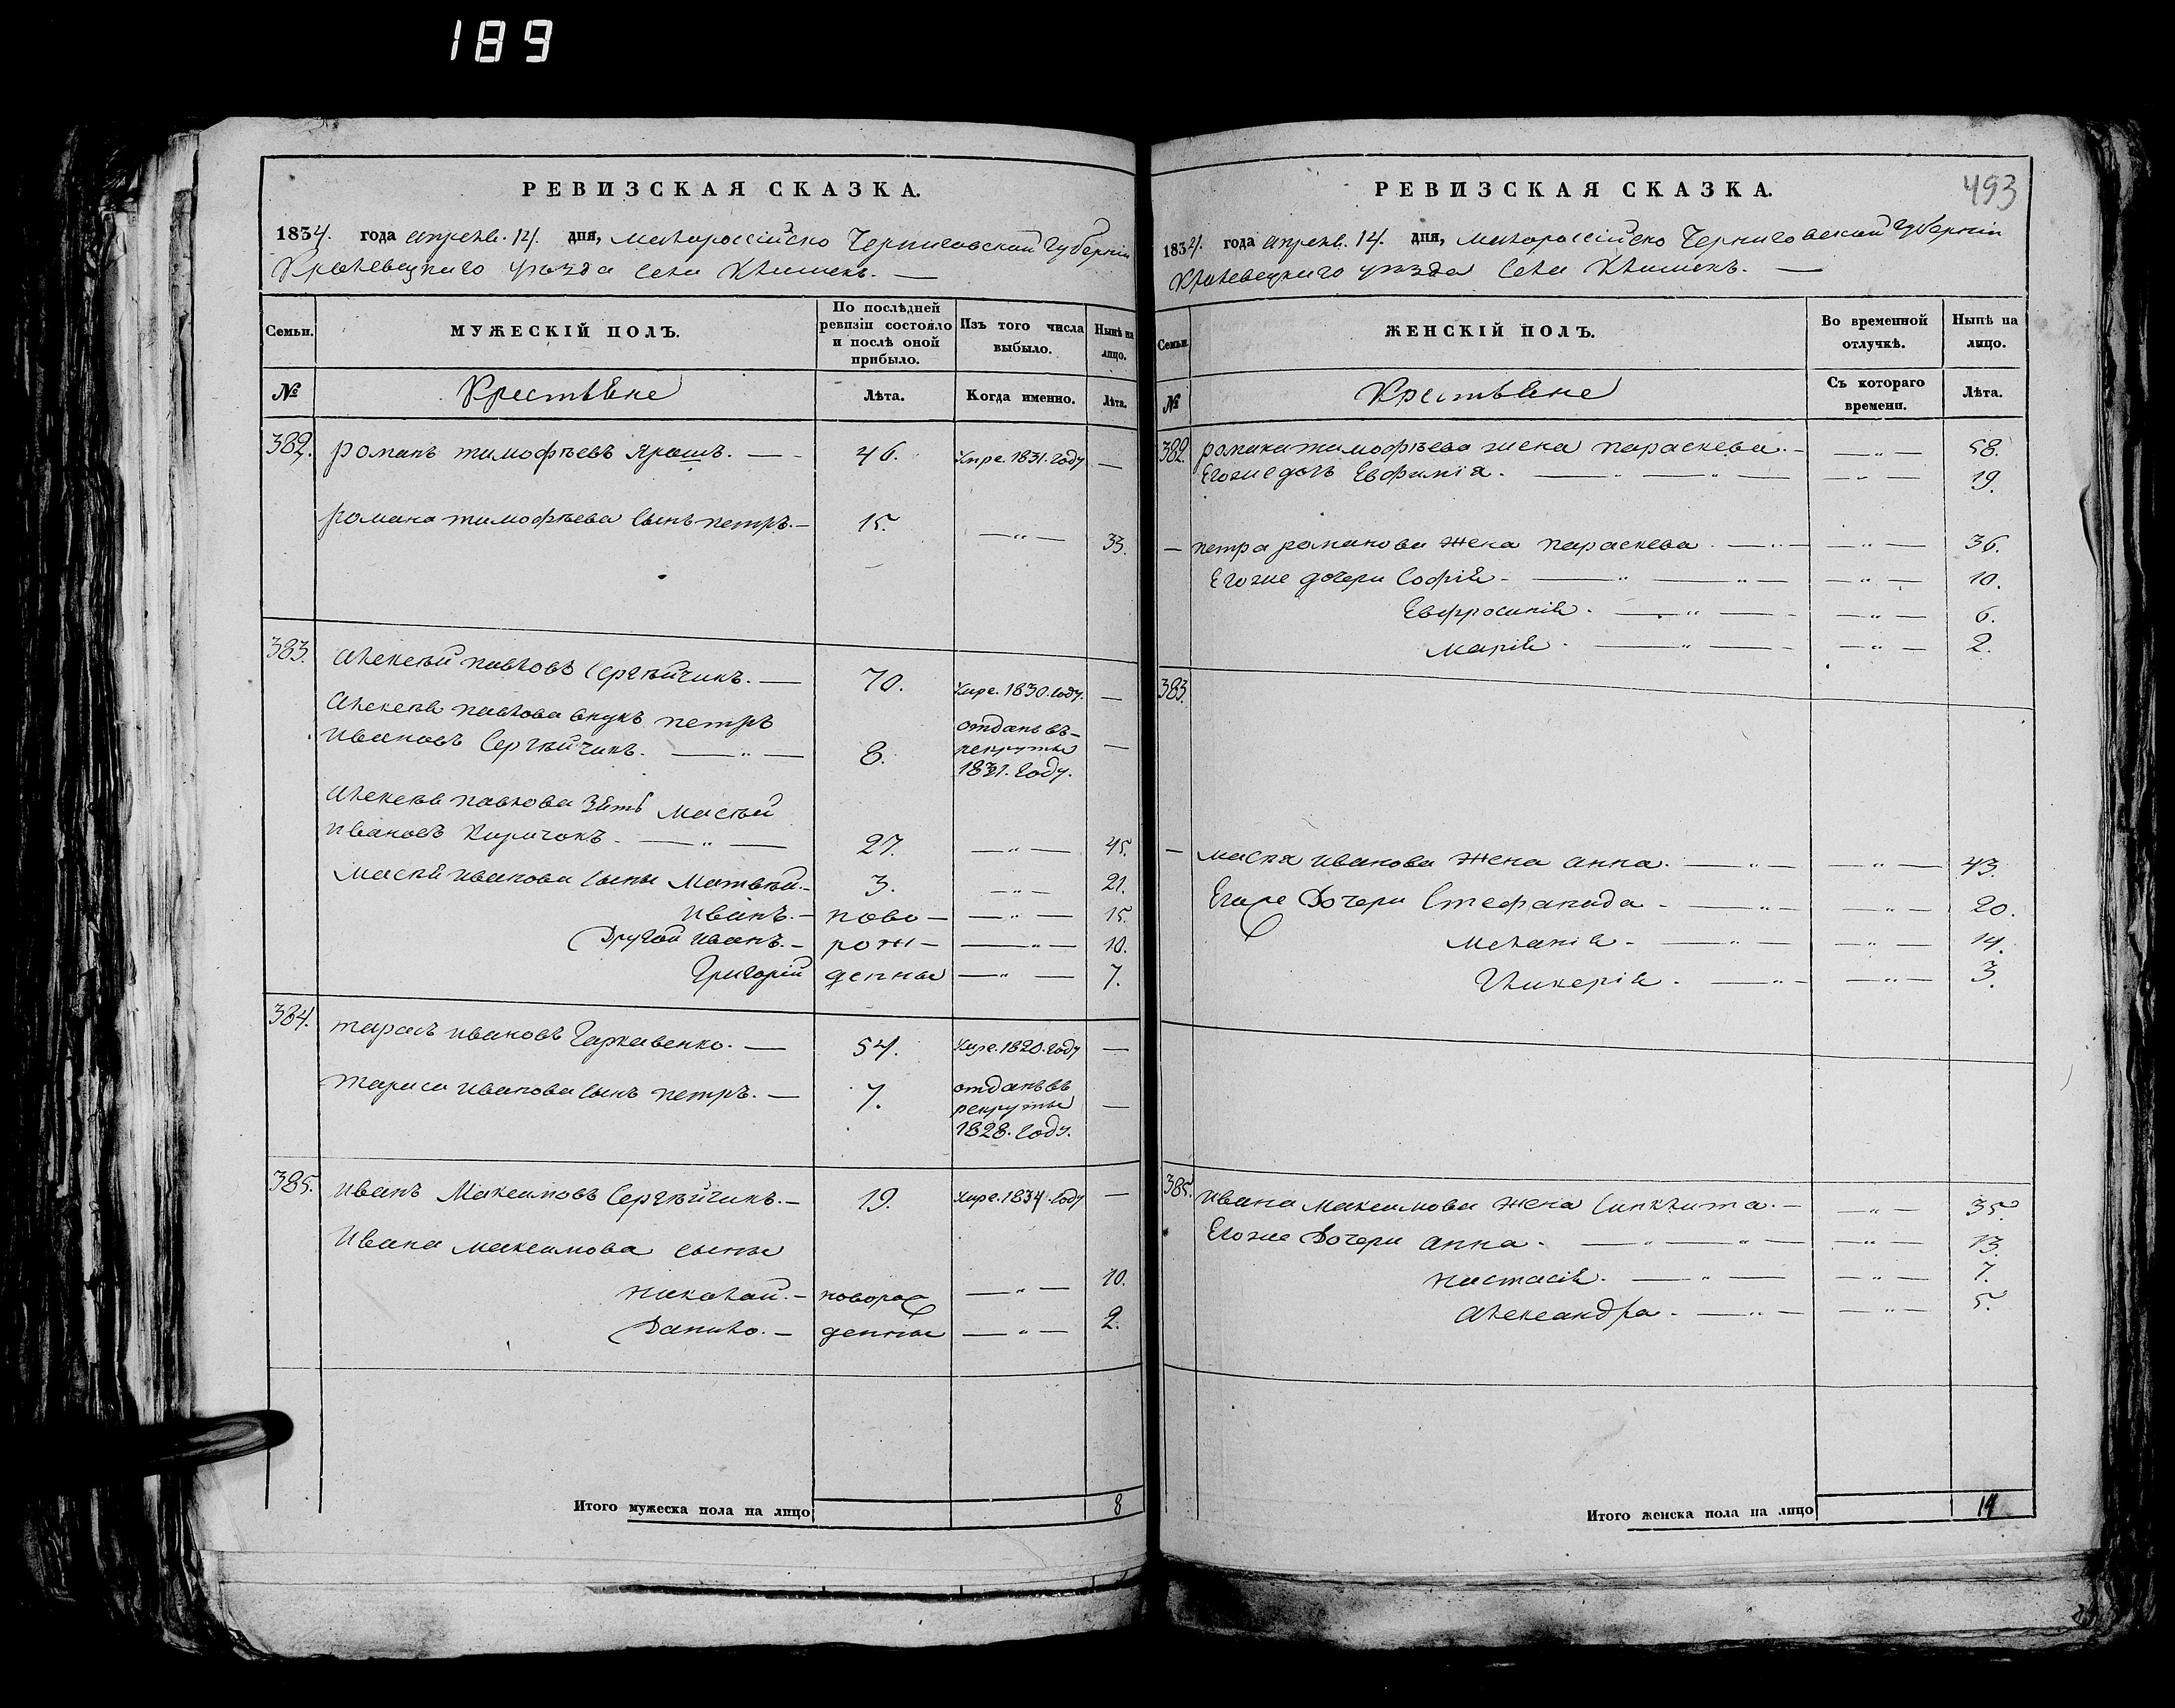 189
РЕВИЗСКАЯ СКАЗКА.
1834. года апреля. 14. дня, малороссійско Черниговской Губерніи
Кролевецкаго уѣзда села Клишекъ.
Семьи.
МУЖЕСКІЙ ПОЛЪ.
По послѣдней ревизіи состояло и послѣ оной прибыло.
Изъ того числа выбыло.
Нынѣ на лицо.
№
Крестьяне
Лѣта.
Когда именно.
Лѣта.
382. романъ тимофѣевъ ярошъ. — 46. Умре. 1831. году —
романа тимофѣева сынъ петръ. — 15. — " — 33.
383. алексѣй павловъ Сергѣйчикъ. — 70. Умре. 1830. году. —
алексѣя павлова внукъ петръ отданъ въ-
ивановъ Сергѣйчикъ. — " — 8. рекруты —
1831. году.
алексѣя павлова зять Масѣй
ивановъ Киричокъ. — " — 27. — " — 45.
Масѣя иванова сыны Матвѣй. — 3. — " — 21.
иванъ. — ново — — " — 15.
Другой иванъ. — рож — — " — 10.
Григорій денные — " — 7.
384. тарасъ ивановъ Гаркавенко. — 54. Умре. 1820. году —
тараса иванова сынъ петръ. — 7. отданъ въ
рекруты —
1828. году.
385. иванъ Максимовъ Сергѣйчикъ. — 19. Умре. 1834. году —
Ивана максимова сыны
николай. — новорож — " — 10.
Данило. — денные — " — 2.
Итого мужеска пола на лицо 8
493
РЕВИЗСКАЯ СКАЗКА.
1834. года апреля. 14. дня, малороссійско Черниговской Губерніи
Кролевецкаго уѣзда села Клишекъ. —
Семьи.
ЖЕНСКІЙ ПОЛЪ.
Во временной отлучкѣ.
Нынѣ на лицо.
№
Крестьяне
Съ котораго времени.
Лѣта.
382. романа тимофѣева жена параскева. — — " — 58.
Егоже дочь Евфимія. — " — " — — " — 19.
— петра романова жена параскева. — " — — " — 36.
Егоже дочери Софія — — " — " — — " — 10.
Евфросинія. — " — — " — 6.
марія. — " — — " — 2.
383.
— масѣя иванова жена анна. — " — — " — 43.
Егоже Дочери Стефанида — — " — — " — 20.
меланія — — " — — " — 14.
Гликерія. — " — — " — 3.
385. ивана максимова жена Синклита. — — " — 35.
Егоже Дочери анна — — " — " — — " — 13.
настасія. — " — — " — 7.
александра — — " — — " — 5.
Итого женска пола на лицо 14